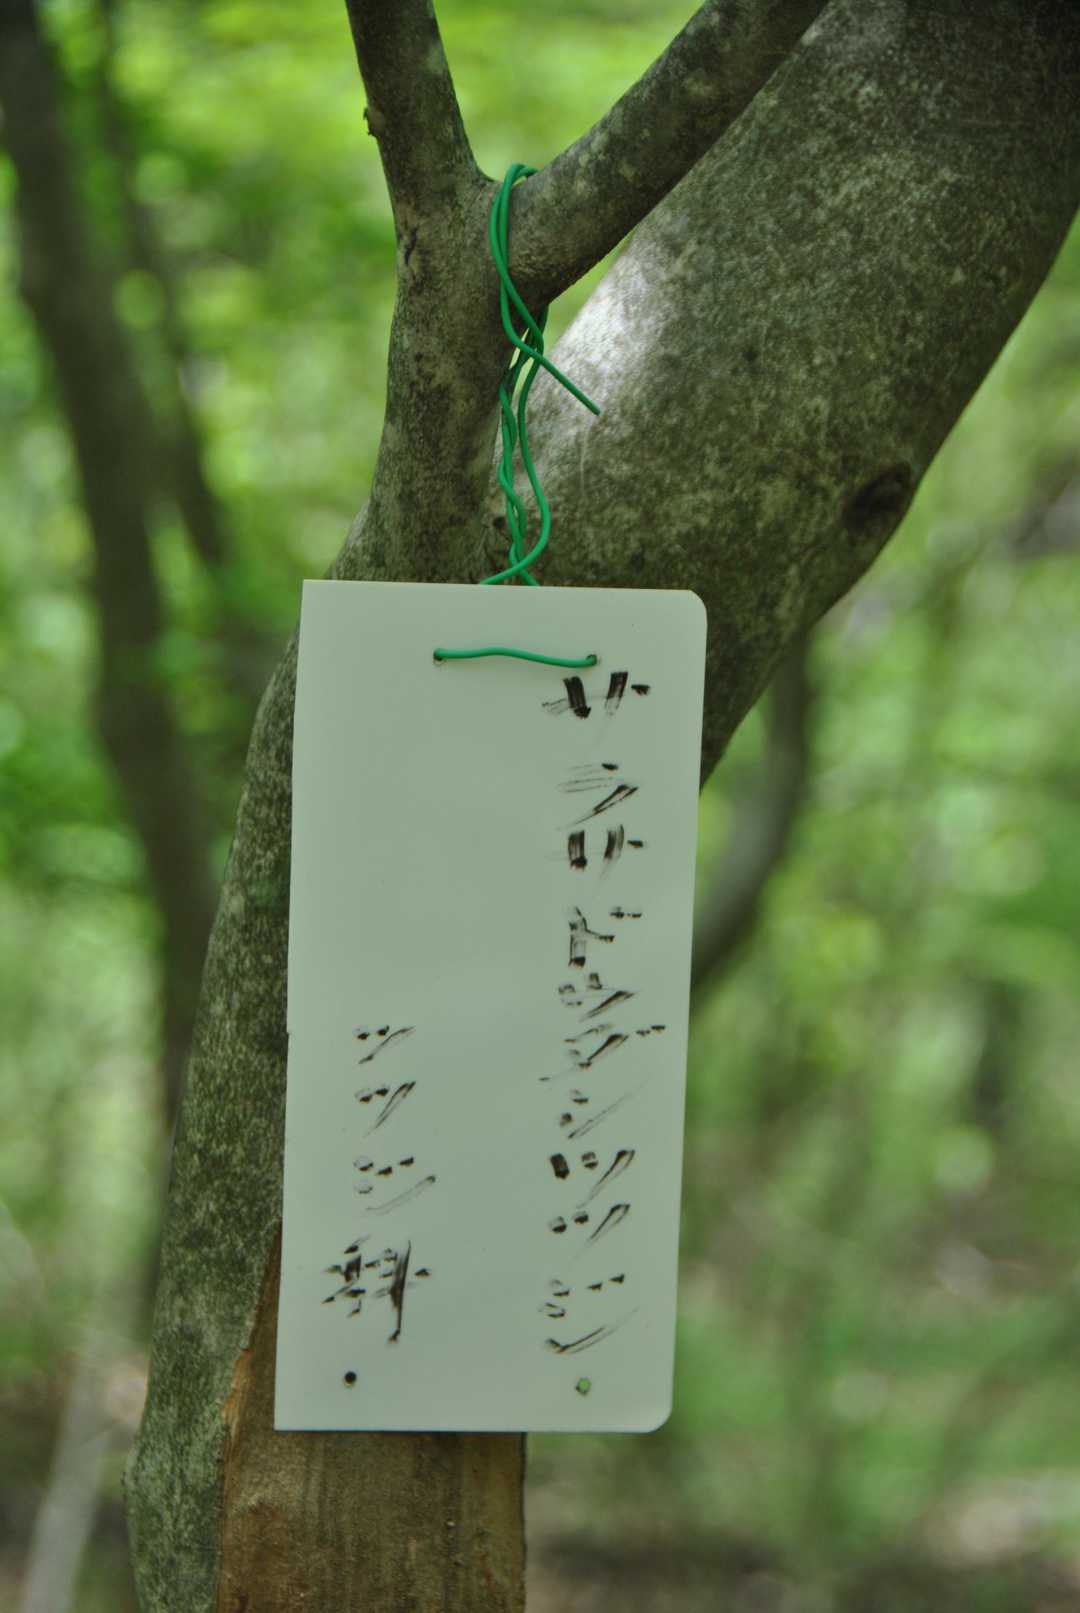 サラサドウダンツツジ
ツツジ科